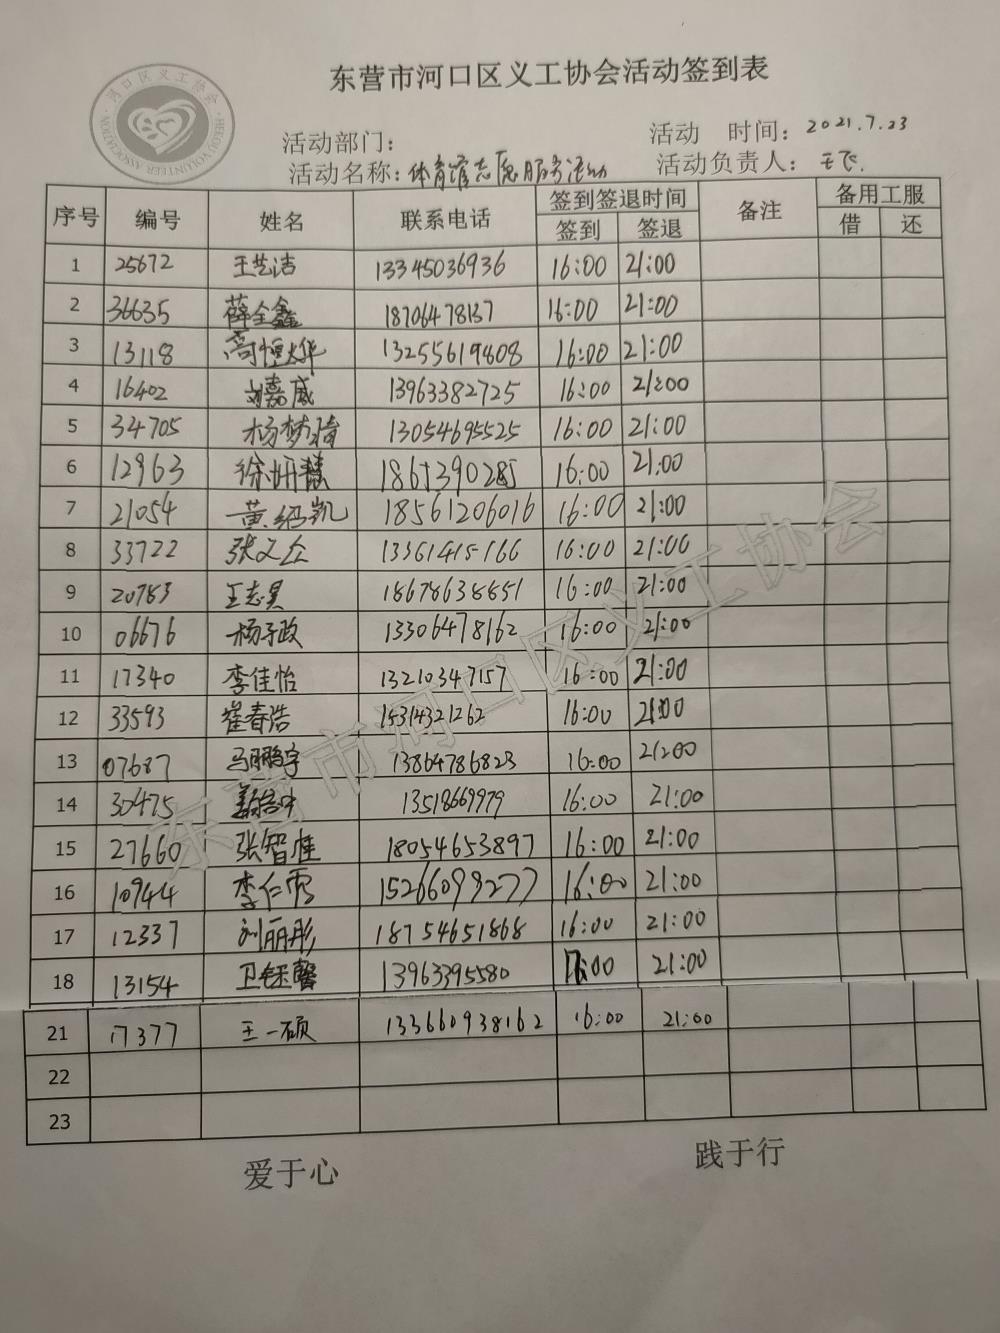 东营市河口区义工协会活动签到表
河口区义工协会
HEKOU VOLUNTEER ASSOCIATION
活动部门： 活动 时间：2021.7.23
活动名称：体育馆志愿服务活动 活动负责人：王飞
序号 编号 姓名 联系电话 签到签退时间 备注 备用工服
签到 签退 借 还
1 25672 王艺洁 13345036936 16:00 21:00
2 36635 薛全鑫 18706478137 16:00 21:00
3 13118 高恒烨 13255619808 16:00 21:00
4 16402 刘嘉威 13963382725 16:00 21:00
5 34705 杨梦琦 13054695525 16:00 21:00
6 12963 徐妍慧 16:00 21:00
7 21054 黄绍凯 18561206016 16:00 21:00
8 33722 张义众 13361415166 16:00 21:00
9 20783 王志昊 18678638851 16:00 21:00
10 06676 杨子政 13306478162 16:00 21:00
11 17340 李佳怡 13210347157 16:00 21:00
12 33593 崔春浩 15314321262 16:00 21:00
13 07687 马鹏宇 13864786823 16:00 21:00
14 30475 13518669979 16:00 21:00
15 27660 张智淮 18054653897 16:00 21:00
16 10944 李仁雪 15266099277 16:00 21:00
17 12337 刘丽彤 18754651868 16:00 21:00
18 13154 卫钰馨 13963395580 16:00 21:00
21 17377 王一硕 133660938162 16:00 21:00
22
23
爱于心 践于行
东营市河口区义工协会